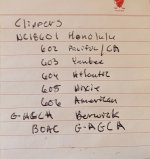 Clippers
NC18601 Honolulu
602 Pacific/CA
603 Yankee
604 Atlantic
605 Dixie
606 American
G-AGCA Berwick
BOAC G-AGCA